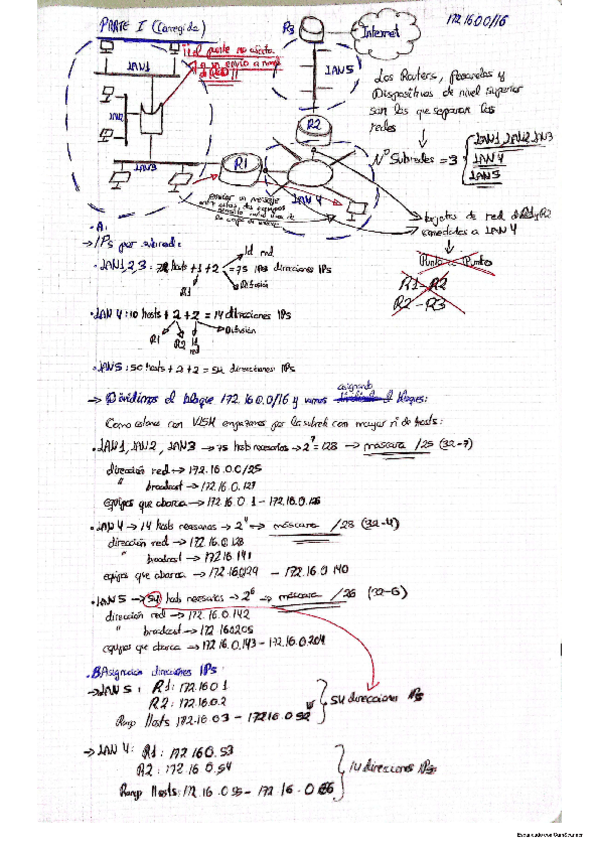 PARTE I (Corregida)
172.16.0.0/16
R3
Internet
LAN1
LAN5
LAN2
LAN3
R1
R2
LAN 4
Los Routers, Pasarelas y
Dispositivos de nivel superior
son los que separan las
redes
Nº Subredes = 3
LAN1, LAN2, LAN3
LAN 4
LAN 5
tarjetas de red de R1 y R2
conectadas a LAN 4
R1 - R2
R2 - R3
·A:
→ IPs por subred:
·LAN 1,2,3: hosts + 1 + 2 = 75 direcciones IPs
Id red
R1
Difusión
·LAN 4: 10 hosts + 2 + 2 = 14 direcciones IPs
R1 R2 Id red
Difusión
·LAN 5: 50 hosts + 2 + 2 = 54 direcciones IPs
→ Dividimos el bloque 172.16.0.0/16 y vamos asignando bloques:
Como estamos con VLSM empezamos por la subred con mayor nº de hosts:
·LAN1, LAN2, LAN3 → 75 host necesarios → 2^7 = 128 → máscara /25 (32-7)
dirección red → 172.16.0.0/25
" broadcast → 172.16.0.127
equipos que abarca → 172.16.0.1 - 172.16.0.126
·LAN 4 → 14 hosts necesarios → 2^4 → máscara /28 (32-4)
dirección red → 172.16.0.128
" broadcast → 172.16.141
equipos que abarca → 172.16.0.129 - 172.16.0.140
·LAN 5 → 54 host necesarios → 2^6 → máscara /26 (32-6)
dirección red → 172.16.0.142
" broadcast → 172.16.0.205
equipos que abarca → 172.16.0.143 - 172.16.0.204
·B Asignación direcciones IPs:
→ LAN 5: R1: 172.16.0.1
R2: 172.16.0.2
Rango Hosts 172.16.0.3 - 172.16.0.52
54 direcciones IPs
→ LAN 4: R1: 172.16.0.53
R2: 172.16.0.54
Rango Hosts: 172.16.0.55 - 172.16.0.
14 direcciones IPs
Escaneado con CamScanner